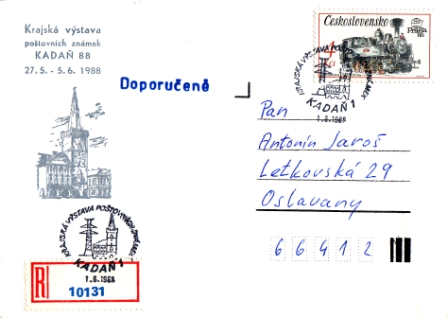 Krajská výstava
poštovních známek
KADAŇ 88
27.5. - 5.6. 1988
Doporučeně
Československo
Praga
4
KRAJSKÁ VÝSTAVA POŠTOVNÍCH ZNÁMEK
KADAŇ 1
1.6.1988
Pan
Antonín Jaroš
Letkovská 29
Oslavany
6 6 4 1 2
KRAJSKÁ VÝSTAVA POŠTOVNÍCH ZNÁMEK
KADAŇ 1
1.6.1988
R
10131